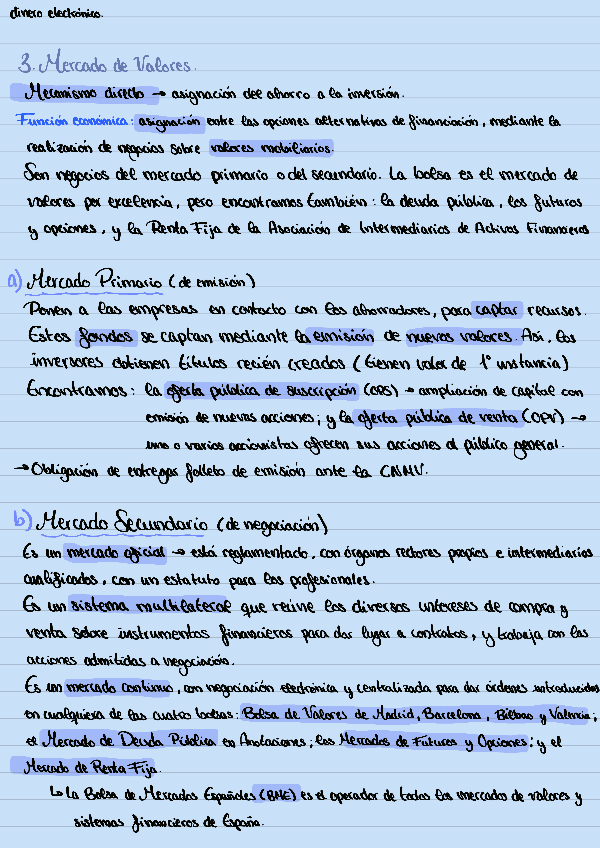 dinero electrónico.
3. Mercado de Valores.
Mecanismo directo → asignación del ahorro a la inversión.
Función económica: asignación entre las opciones alternativas de financiación, mediante la
realización de negocios sobre valores mobiliarios.
Son negocios del mercado primario o del secundario. La bolsa es el mercado de
valores por excelencia, pero encontramos también: la deuda pública, los futuros
y opciones, y la Renta Fija de la Asociación de Intermediarios de Activos Financieros
a) Mercado Primario (de emisión)
Ponen a las empresas en contacto con los ahorradores, para captar recursos.
Estos fondos se captan mediante la emisión de nuevos valores. Así, los
inversores obtienen títulos recién creados (tienen valor de 1º instancia)
Encontramos: la oferta pública de suscripción (OPS) → ampliación de capital con
emisión de nuevas acciones; y la oferta pública de venta (OPV) →
uno o varios accionistas ofrecen sus acciones al público general.
→ Obligación de entregar folleto de emisión ante la CNMV.
b) Mercado Secundario (de negociación)
Es un mercado oficial → está reglamentado, con órganos rectores propios e intermediarios
cualificados, con un estatuto para los profesionales.
Es un sistema multilateral que reúne los diversos intereses de compra y
venta sobre instrumentos financieros para dar lugar a contratos, y trabaja con las
acciones admitidas a negociación.
Es un mercado continuo, con negociación electrónica y centralizada para dar órdenes introducidas
en cualquiera de las cuatro bolsas: Bolsa de Valores de Madrid, Barcelona, Bilbao y Valencia;
el Mercado de Deuda Pública en Anotaciones; los Mercados de Futuros y Opciones; y el
Mercado de Renta Fija.
↳ La Bolsa de Mercados Españoles (BME) es el operador de todos los mercados de valores y
sistemas financieros de España.